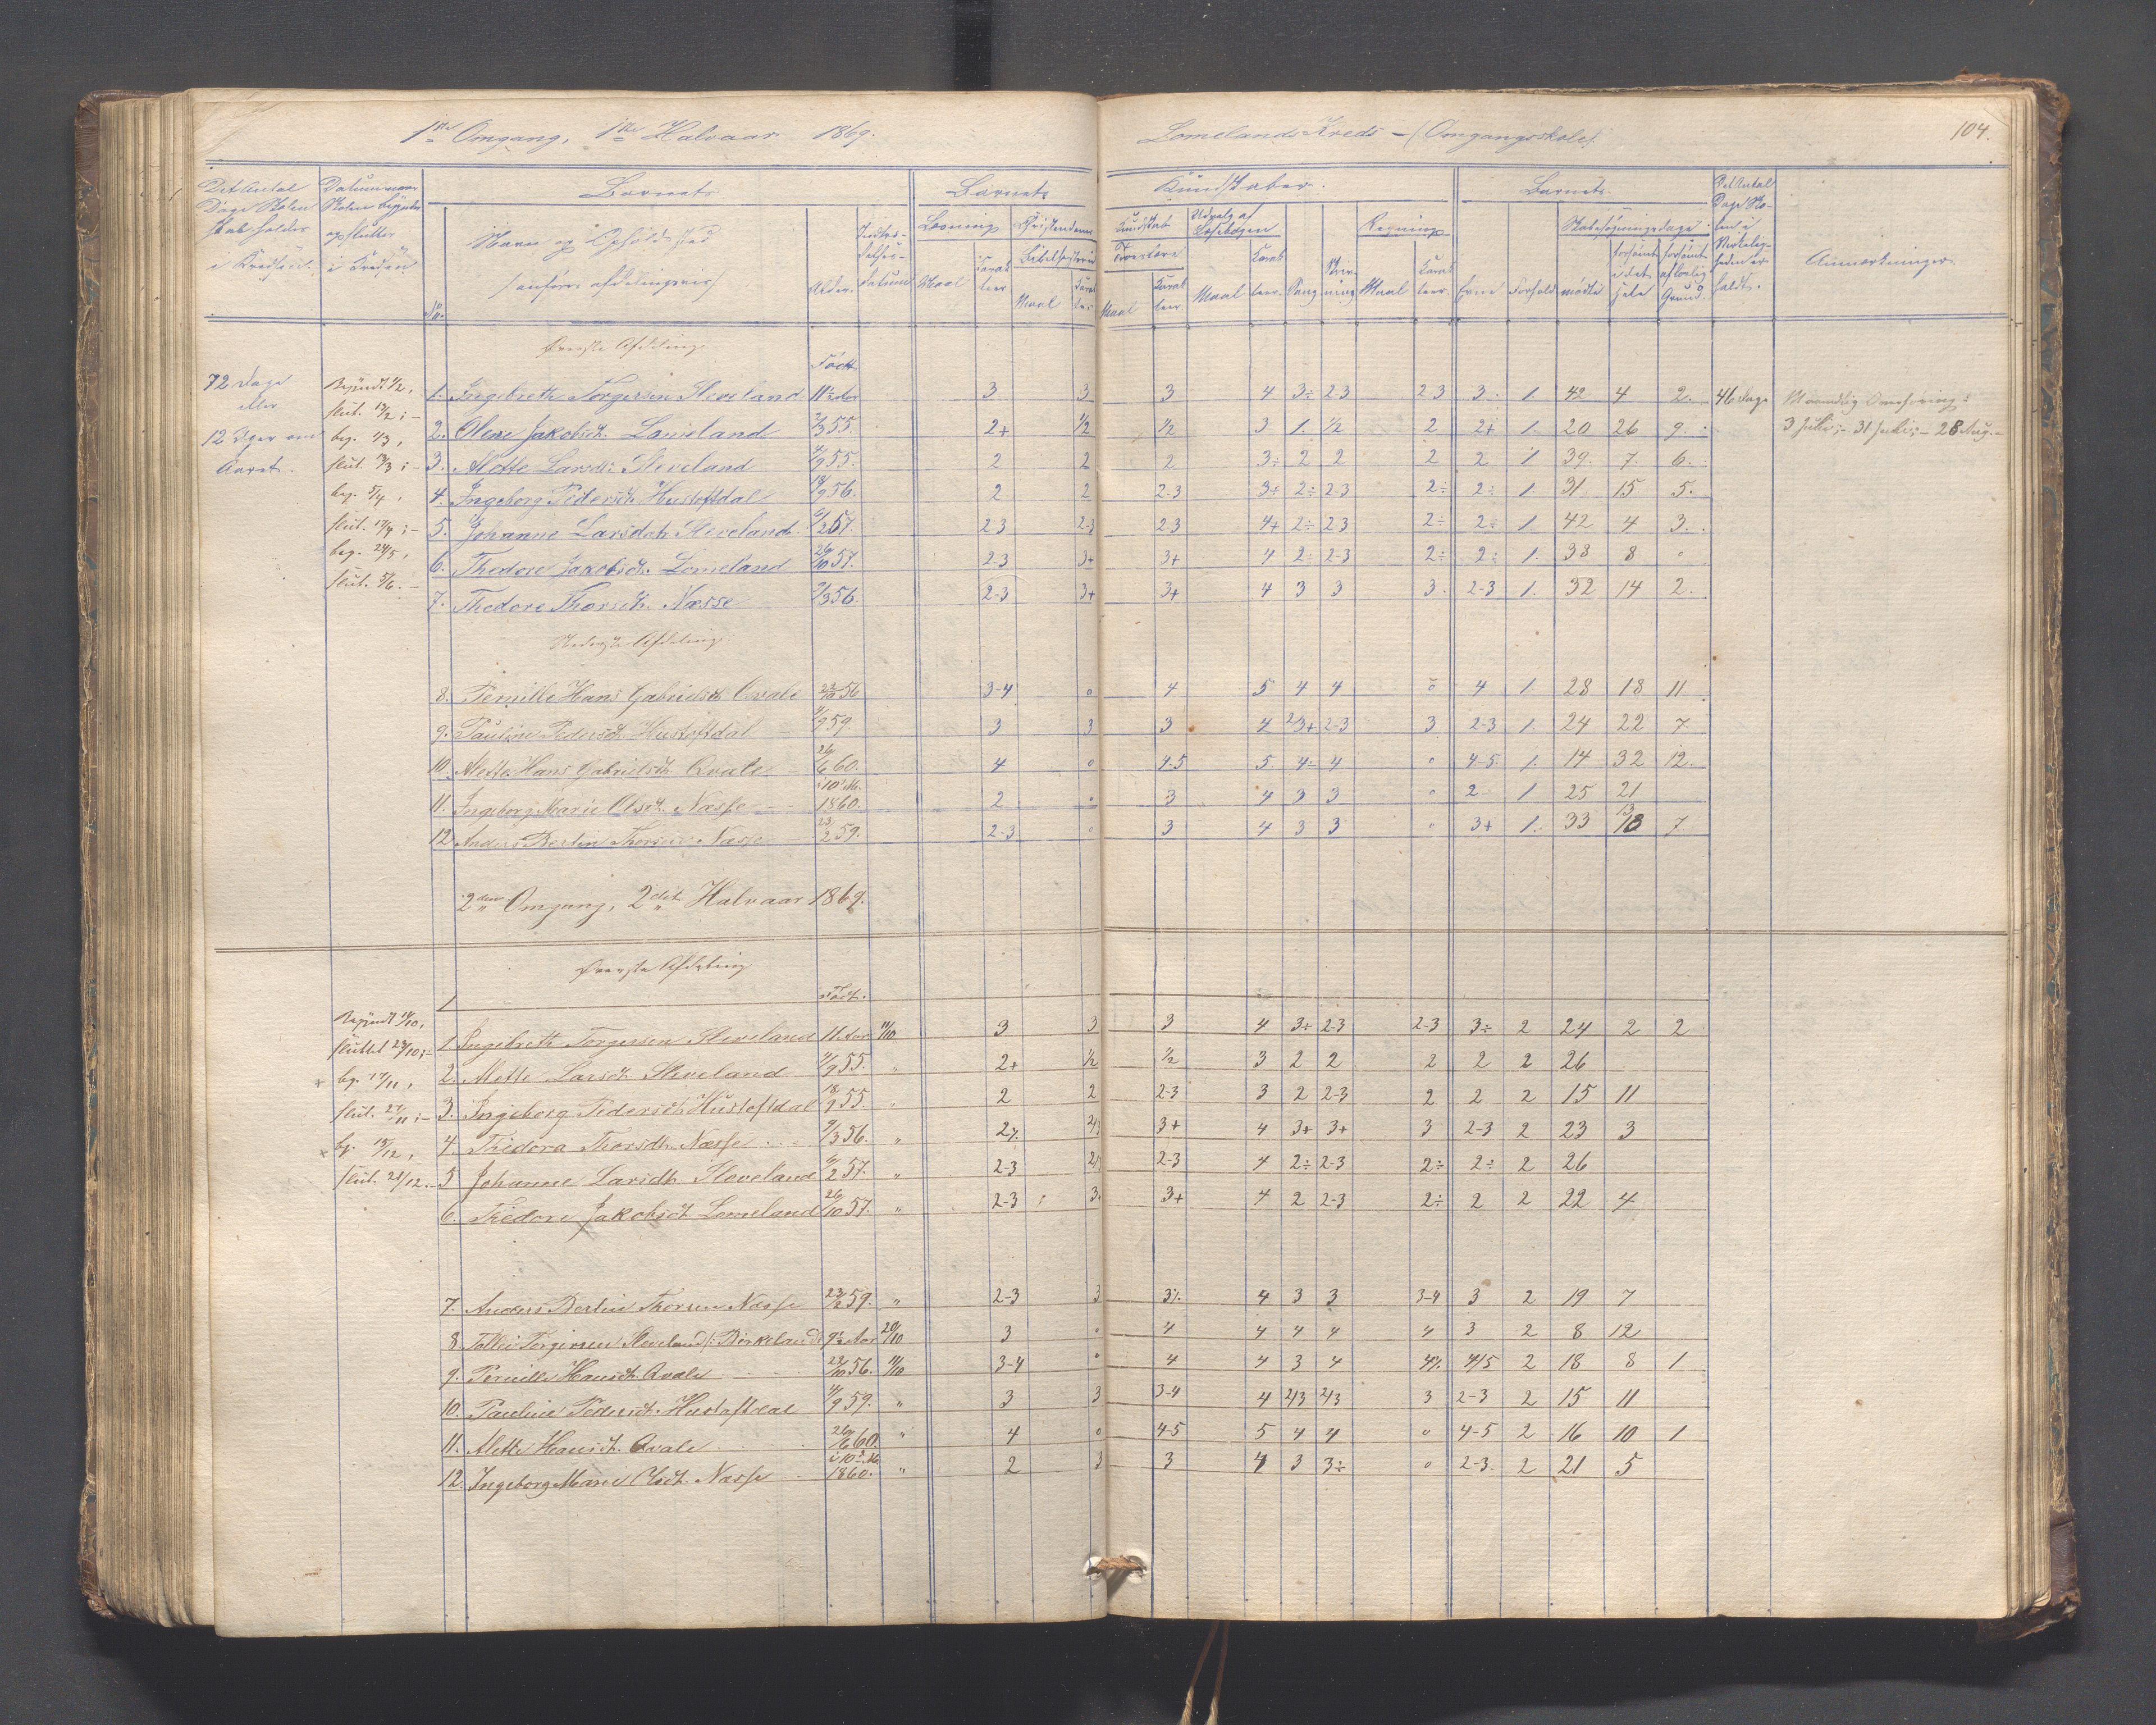 1ste Omgang, 1ste Halvaar 1869.
Lomelands Kreds – (Omgangsskole). 104.
Det Antal Dage Skolen skal holdes i Kredsen.
Datum naar Skolen begynder og slutter i Kredsen
Barnets
No.
Navn og Opholdssted
(anføres afdelingsviis)
Alder.
Indtrædelses-Datum
Barnets Kundskaber.
Læsning
Maal
Karakteer
Christendoms Kundskab
Bibelhistorie
Maal
Karakter
Troeslære
Maal
Karakteer
Udvalg af Læsebogen
Maal
Karakteer.
Sang
Skrivning
Regning
Maal
Karakteer.
Barnets
Evne
Forhold
Skolesøgningsdage
mødte
forsømte i det hele
forsømte af lovlig Grund.
Det Antal Dage Skolen i Virkeligheden er holdt.
Anmærkninger.
Øverste Afdeling
Født
72 Dage eller 12 Uger om Aaret.
Begyndt 1/2, slut. 13/2; –
beg. 4/3, slut. 13/3; –
beg. 5/4, slut. 17/4; –
beg. 24/5, slut. 5/6. –
1. Ingebreth Torgersen Sleveland 11½ Aar 3 3 3 4 3÷ 2-3 2-3 3 1. 42 4 2. 46 Dage
Maanedlig Overhøring:
3 Juli; – 31 Juli; – 28 Aug. –
2. Olene Jakobsdt. Lomeland 2/3 55. 2+ 1/2 1/2 3 1. 1/2 2 2+ 1. 20 26 9.
3. Mette Larsdt. Sleveland 4/9 55. 2 2 2 3÷ 2 2 2 2 1 39. 7. 6.
4. Ingeborg Pedersdt. Hustoftdal 18/9 56. 2 2 2-3 3+ 2÷ 2-3 2÷ 2÷ 1. 31 15 5.
5. Johanne Larsdt. Sleveland 6/2 57. 2-3 2-3 2-3 4+ 2÷ 2-3 2÷ 2÷ 1 42 4 3.
6. Thedore Jakobsdt. Lomeland 26/10 57. 2-3 3+ 3+ 4 2÷ 2-3 2÷ 2÷ 1. 38 8 0
7. Thedore Thorsdt. Næsse 9/3 56. 2-3 3+ 3+ 4 3 3 3. 2-3 1. 32 14 2.
Nederste Afdeling.
8. Pernille Hans Gabrielsdt. Qvale 22/10 56 3-4 0 4 5 4 4 0 4 1 28 18 11
9. Pauline Pedersdt. Hustoftdal 4/9 59 3 3 3 4 2-3+ 2-3 3 2-3 1. 24 22 7.
10. Mette Hans Gabrielsdt. Qvale 26/6 60. 4 0 4-5 5 4÷ 4 0 4-5 1. 14 32 12.
11. Ingeborg Marie Olsdt. Næsse i 10. M. 1860. 2 0 3 4 3 3 0 2 1 25 21
12. Anders Bertin Thorsen Næsse 23/2 59. 2-3 0 3 4 3 3 0 3+ 1. 33 13 7
2den Omgang, 2det Halvaar 1869.
Øverste Afdeling
Født.
Begyndt 11/10, sluttet 23/10; –
beg. 17/11, slut. 27/11; –
bg. 15/12, slut. 21/12. –
1. Ingebreth Torgersen Sleveland 11 Aar 11/10 3 3 3 4 3+ 2-3 2-3 3÷ 2 24 2 2
2. Mette Larsdt. Sleveland 4/9 55. " 2+ 1/2 1/2 3 2 2 2 2 2 26
3. Ingeborg Pedersdt. Hustoftdal 18/9 55. " 2 2 2-3 3 2 2-3 2 2 2 15 11
4. Thedora Thorsdt. Næsse 9/3 56. " 2% 2/3 3+ 4 3+ 3+ 3 2-3 2 23 3
5 Johanne Larsdt. Sleveland 6/2 57. " 2-3 2/3 2-3 4 2÷ 2-3 2÷ 2÷ 2 26
6. Thedore Jakobsdt. Lomeland 26/10 57. " 2-3 3. 3+ 4 2 2-3 2÷ 2 2 22 4
7. Anders Bertin Thorsen Næsse 23/2 59. " 2-3 3 3% 4 3 3 3-4 3 2 19 7
8. Tollei Torgersen Sleveland /: Birkeland 9½ Aar 20/10 3 0 4 4 4 4 4 3 2 8 12
9. Pernille Hansdt. Qvale 22/10 56. 11/10 3-4 0 4 4 3 4 4% 4/5 2 18 8 1
10. Pauline Pedersdt. Hustoftdal 4/9 59. " 3 3 3-4 4 2/3 2/3 3 2-3 2 15 11
11. Mette Hansdt. Qvale 26/6 60. " 4 0 4-5 5 4 4 0 4-5 2 16 10 1
12. Ingeborg Marie Olsdt. Næsse i 10. M. 1860. " 2 3 3 4 3 3÷ 0 2-3. 2 21 5